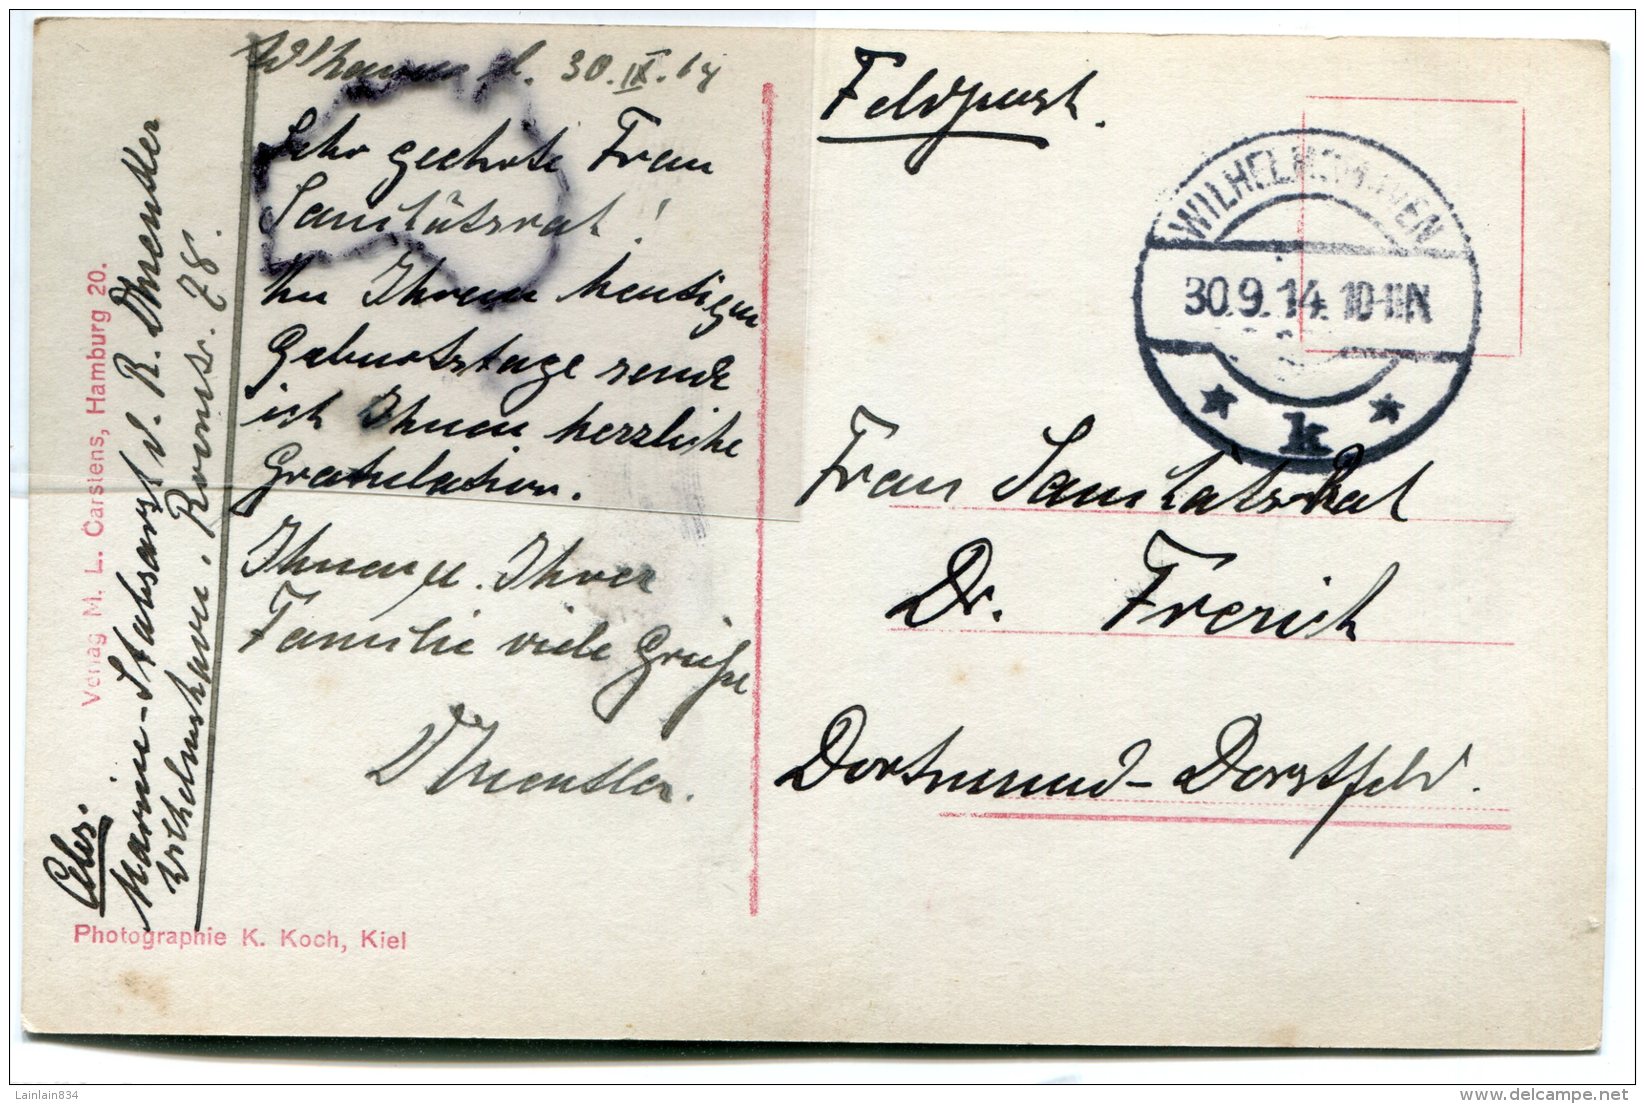 W'haven d. 30.IX.14
Sehr geehrte Frau
Sanitätsrat!
Zu Ihrem heutigen
Geburtstage sende
ich Ihnen herzliche
Gratulation.
Ihnen u. Ihrer
Familie viele Grüße
Abs:
Marine-Stabsarzt d. R.
Wilhelmshaven, Roonstr. 78.
Verlag M. L. Carstens, Hamburg 20.
Photographie K. Koch, Kiel
Feldpost.
WILHELMSHAVEN
30.9.14. 10-11N
* k *
Frau Sanitätsrat
Dr. Frerich
Dortmund-Dorstfeld.
Lainlain834
www.delcampe.net